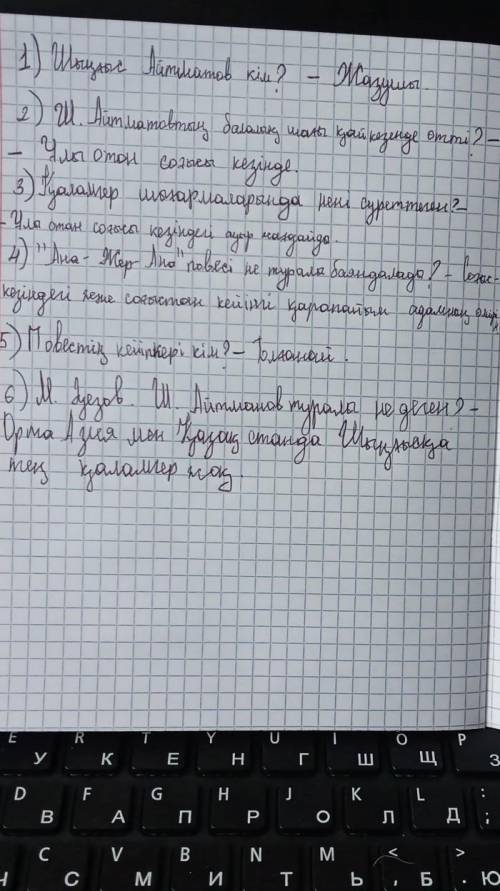 1) Шыңғыс Айтматов кім? – Жазушы.
2) Ш. Айтматовтың балалық шағы қай кезенде өтті? –
– Ұлы отан соғысы кезінде.
3) Қаламгер шығармаларында нені суреттеген? –
– Ұлы отан соғысы кезіндегі ауыр жағдайда.
4) "Ана - Жер - Ана" повесі не туралы баяндалады? –
кезіндегі және соғыстан кейінгі қарапайым адамның өмірі
5) Повестің кейіпкері кім? – Толғанай.
6) М. Әуезов Ш. Айтманов туралы не деген? –
Орта Азия мен Қазақстанда Шыңғысқа
тең қаламгер жоқ.
E R T Y U I O P
У К Е Н Г Ш Щ З
D F G H J K L :
;
В А П Р О Л Д
C V B N M < >
, .
Ч С М И Т Ь Б Ю